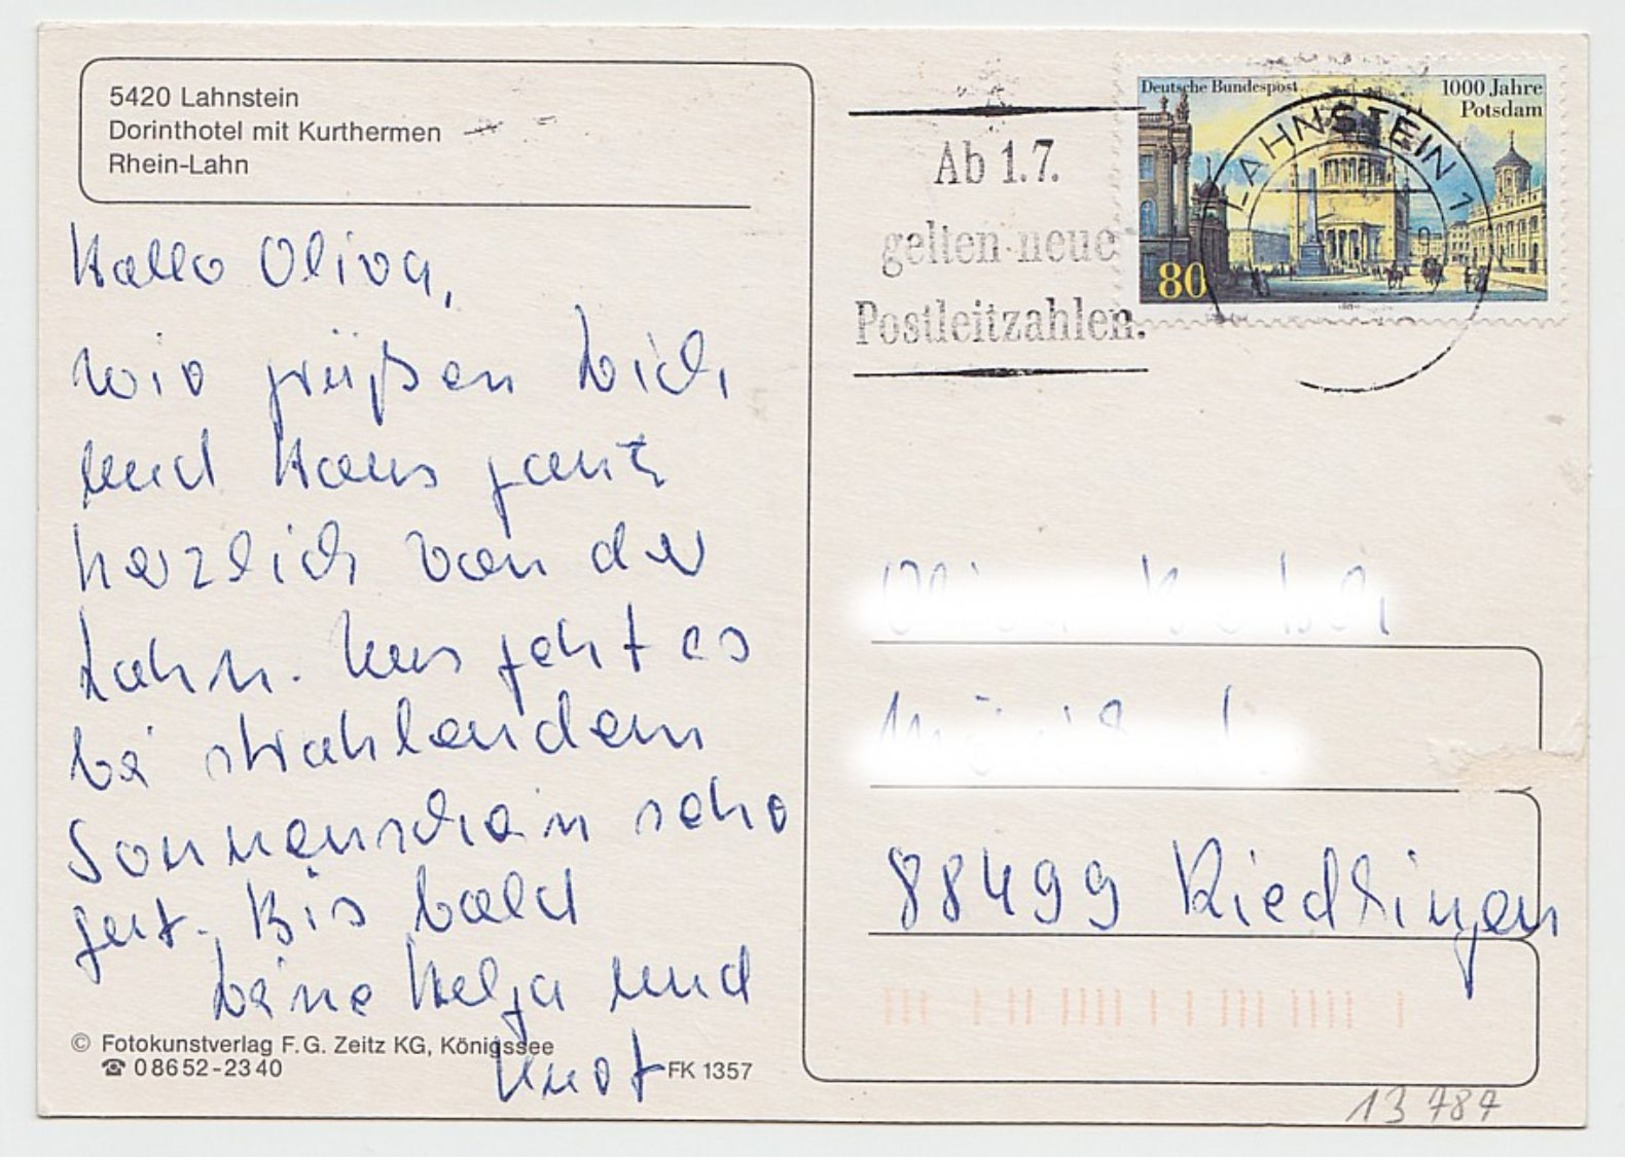 5420 Lahnstein
Dorinthotel mit Kurthermen
Rhein-Lahn
Hallo Oliva,
wir grüßen Dich
und Haus ganz
herzlich von der
Lahn. Uns geht es
bei strahlendem
Sonnenschein sehr
gut. Bis bald
Deine Helga und
© Fotokunstverlag F.G. Zeitz KG, Königssee
☎ 08652-2340
Knut
FK 1357
Ab 1.7.
gelten neue
Postleitzahlen.
Deutsche Bundespost
1000 Jahre
Potsdam
80
LAHNSTEIN 1
88499 Riedlingen
13787